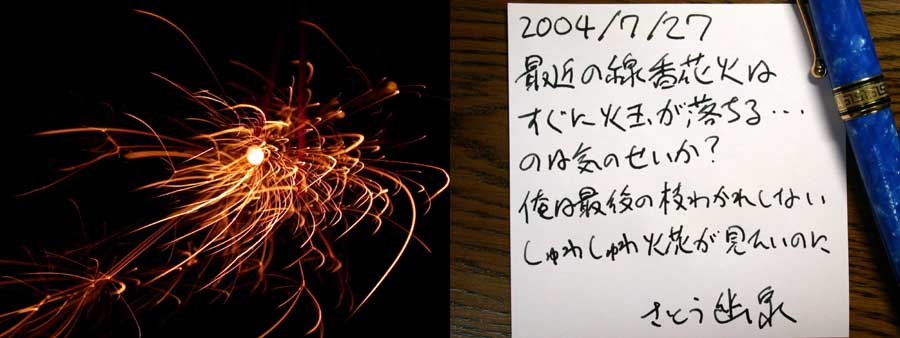 2004/7/27
最近の線香花火は
すぐに火玉が落ちる…
のは気のせいか？
俺は最後の枝わかれしない
しゅわしゅわ火花が見たいのに
さとう幽泉